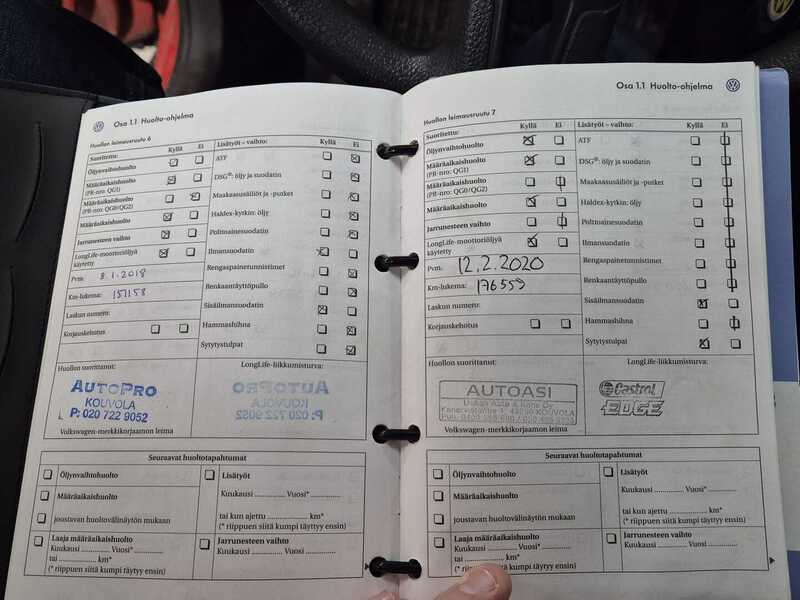 Osa 1.1 Huolto-ohjelma
Huollon leimausruutu 6
Suoritettu: Kyllä Ei
Öljynvaihtohuolto
Määräaikaishuolto
(PR-nro: QG1)
Määräaikaishuolto
(PR-nro: QG0/QG2)
Määräaikaishuolto
Jarrunesteen vaihto
LongLife-moottoriöljyä
käytetty
Pvm: 8.1.2018
Km-lukema: 151158
Laskun numero:
Korjauskehotus
Lisätyöt – vaihto: Kyllä Ei
ATF
DSG®: öljy ja suodatin
Maakaasusäiliöt ja -putket
Haldex-kytkin: öljy
Polttoainesuodatin
Ilmansuodatin
Rengaspainetunnistimet
Renkaantäyttöpullo
Sisäilmansuodatin
Hammashihna
Sytytystulpat
Huollon suorittanut:
AUTOPRO
KOUVOLA
P: 020 722 9052
Volkswagen-merkkikorjaamon leima
LongLife-liikkumisturva:
AUTOPRO
KOUVOLA
P: 020 722 9052
Seuraavat huoltotapahtumat
Öljynvaihtohuolto
Määräaikaishuolto
joustavan huoltovälinäytön mukaan
Laaja määräaikaishuolto
Kuukausi ............ Vuosi* ............
tai ............ km*
(* riippuen siitä kumpi täyttyy ensin)
Lisätyöt
Kuukausi ............ Vuosi* ............
tai kun ajettu ............ km*
(* riippuen siitä kumpi täyttyy ensin)
Jarrunesteen vaihto
Kuukausi ............ Vuosi ............
Osa 1.1 Huolto-ohjelma
Huollon leimausruutu 7
Suoritettu: Kyllä Ei
Öljynvaihtohuolto
Määräaikaishuolto
(PR-nro: QG1)
Määräaikaishuolto
(PR-nro: QG0/QG2)
Määräaikaishuolto
Jarrunesteen vaihto
LongLife-moottoriöljyä
käytetty
Pvm: 12.2.2020
Km-lukema: 176559
Laskun numero:
Korjauskehotus
Lisätyöt – vaihto: Kyllä Ei
ATF
DSG®: öljy ja suodatin
Maakaasusäiliöt ja -putket
Haldex-kytkin: öljy
Polttoainesuodatin
Ilmansuodatin
Rengaspainetunnistimet
Renkaantäyttöpullo
Sisäilmansuodatin
Hammashihna
Sytytystulpat
Huollon suorittanut:
AUTOASI
KOUVOLA
Volkswagen-merkkikorjaamon leima
LongLife-liikkumisturva:
Castrol
EDGE
Seuraavat huoltotapahtumat
Öljynvaihtohuolto
Määräaikaishuolto
joustavan huoltovälinäytön mukaan
Laaja määräaikaishuolto
Kuukausi ............ Vuosi* ............
tai ............ km*
(* riippuen siitä kumpi täyttyy ensin)
Lisätyöt
Kuukausi ............ Vuosi* ............
tai kun ajettu ............ km*
(* riippuen siitä kumpi täyttyy ensin)
Jarrunesteen vaihto
Kuukausi ............ Vuosi ............